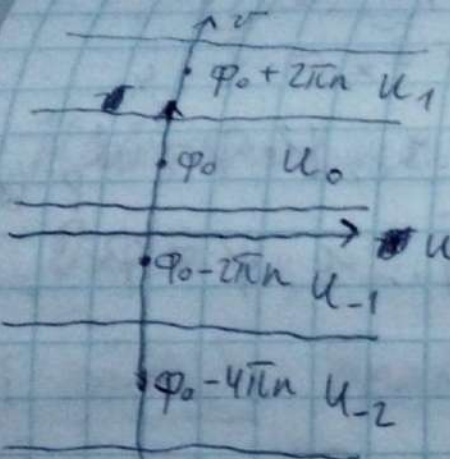 v
φ₀ + 2πn U₁
φ₀ U₀
u
φ₀ - 2πn U₋₁
φ₀ - 4πn U₋₂